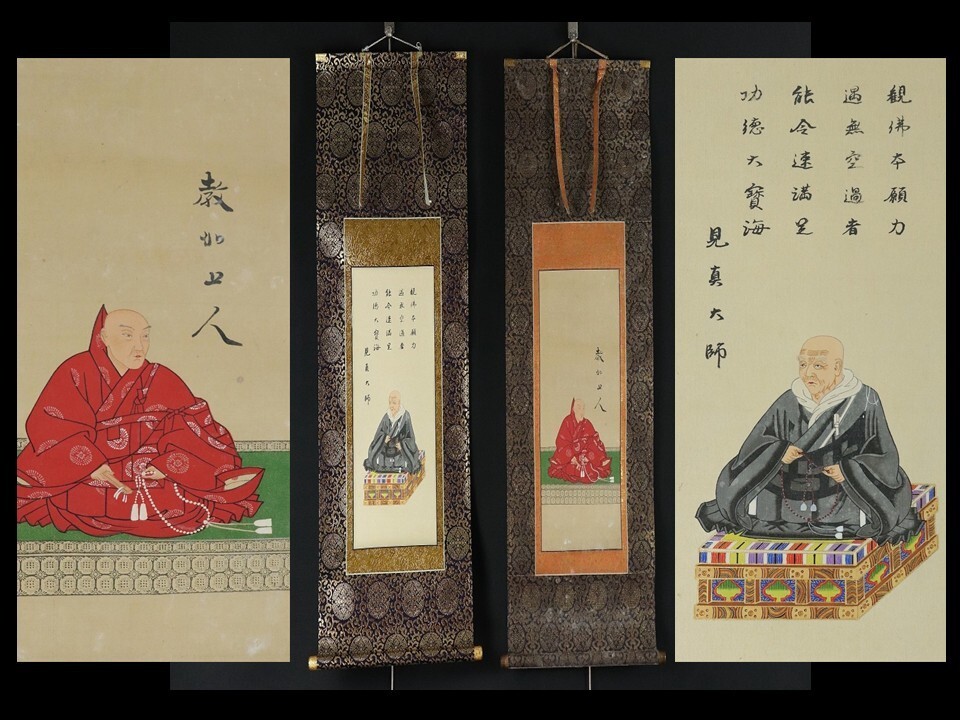 教如上人
觀佛本願力
遇無空過者
能令速滿足
功徳大寶海
見真大師
教如上人
觀佛本願力
遇無空過者
能令速滿足
功徳大寶海
見真大師